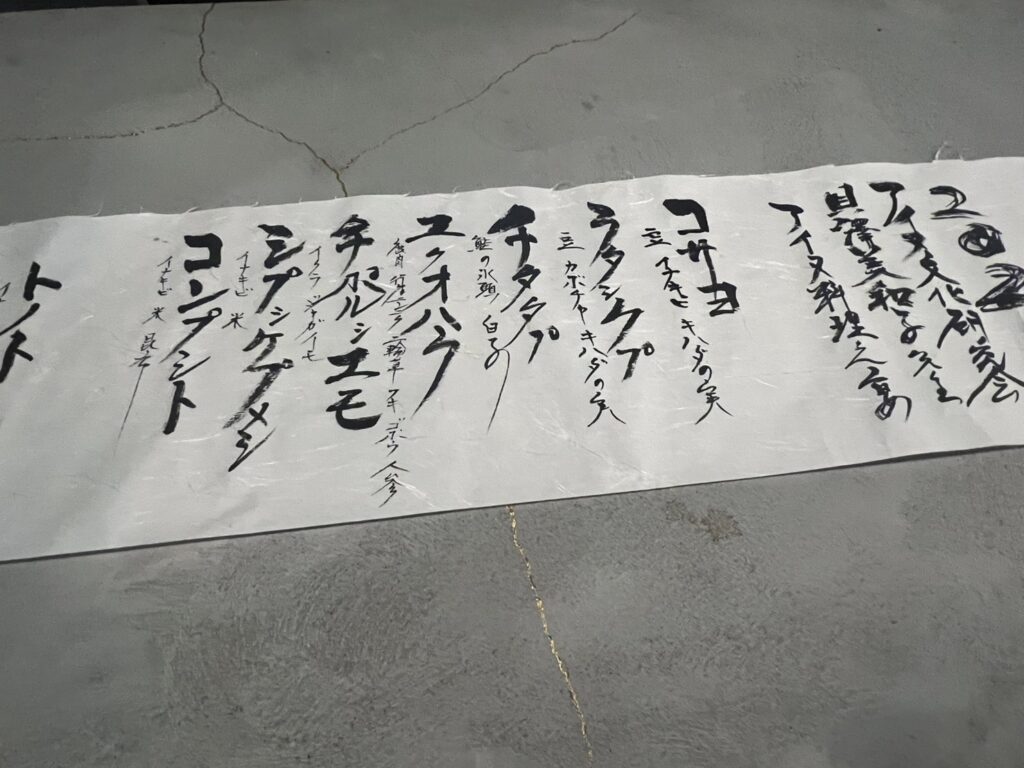 2022
アイヌ文化研究会
貝澤美和子先生
アイヌ料理之宴
コサヨ
豆 イナキビ キハダの実
ラタシケプ
豆 カボチャ キハダの実
チタタプ
鮭の氷頭 白子
ユクオハウ
鹿肉 二輪草 ゴボウ 人参
チポルシエモ
イクラ ジャガイモ
シプシケプメシ
イナキビ 米
コンプシト
イナキビ 米 昆布
トノト